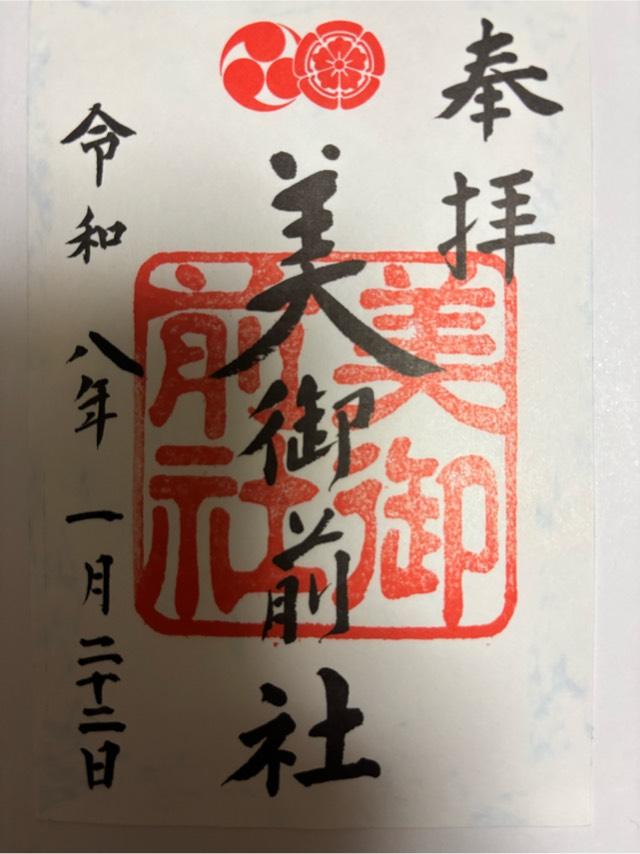 奉拝
美御前社
美御前社
令和八年一月二十二日